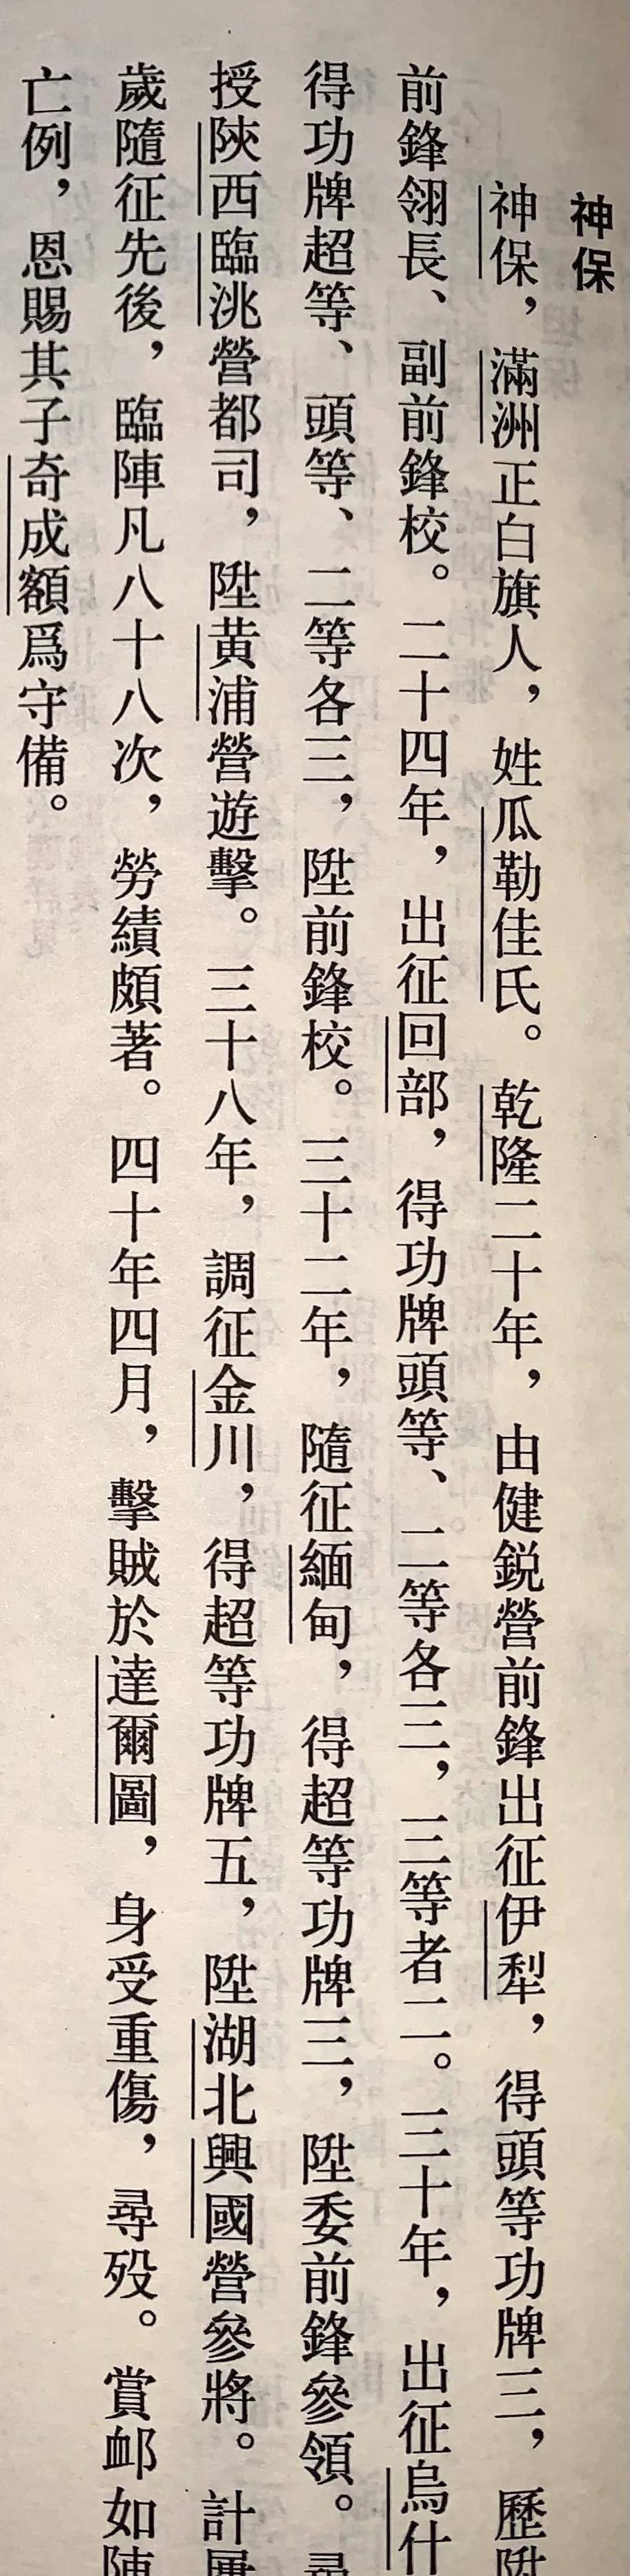 神保
神保，滿洲正白旗人，姓瓜勒佳氏。乾隆二十年，由健鋭營前鋒出征伊犁，得頭等功牌三，歷
前鋒翎長、副前鋒校。二十四年，出征回部，得功牌頭等、二等各三，三等者二。三十年，出征烏什
得功牌超等、頭等、二等各三，陞前鋒校。三十二年，隨征緬甸，得超等功牌三，陞委前鋒參領。
授陝西臨洮營都司，陞黃浦營遊擊。三十八年，調征金川，得超等功牌五，陞湖北興國營參將。計
歲隨征先後，臨陣凡八十八次，勞績頗著。四十年四月，擊賊於達爾圖，身受重傷，尋歿。賞卹如
亡例，恩賜其子奇成額爲守備。